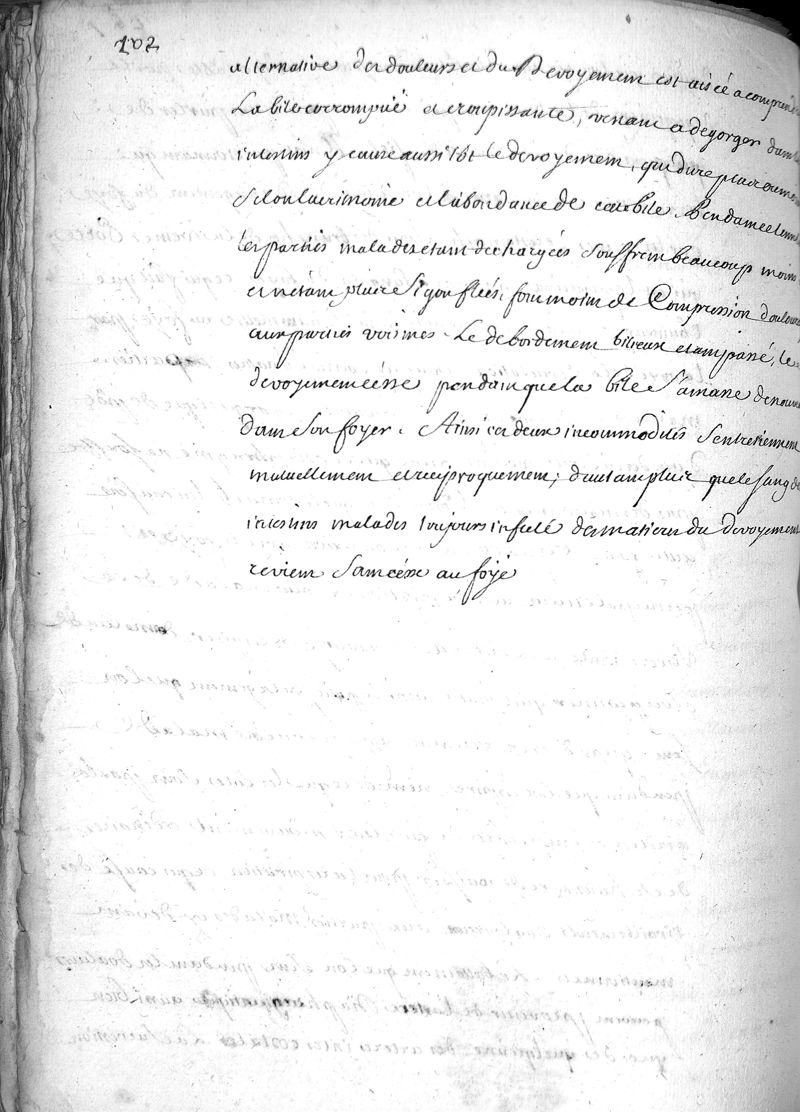 102
alternative des douleurs et du Devoyement est aisée a comprendre
La bile corrompuë et croupissante, venant a degorger dans les
intestins y cause aussitôt le devoyement, qui dure plus ou moins
Selon lacrimonie et labondance de cette bile. Pendant ce tems
les parties malades etant dechargées souffrent beaucoup moins
et netant plus si gonflées, font moins de Compression douloureuse
aux parties voisines. Le debordement bilieux etant passé, le
devoyement cesse pendant que la bile S'amasse de nouveau
dans son foyer. Ainsi ces deux incommodités s'entretiennent
mutuellement et reciproquement; dautant plus que le sang des
intestins malades toujours infecté des matieres du devoyement
revient sans cesse au foye